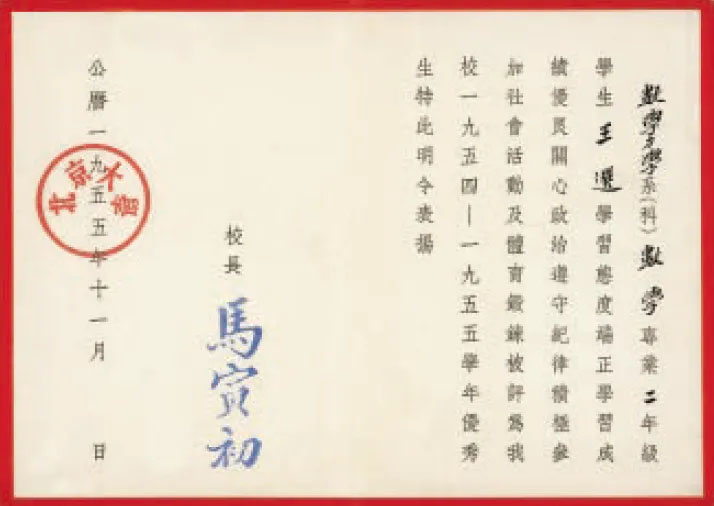 數學力學系（科）數學專業二年級
學生王選學習態度端正學習成
績優良關心政治遵守紀律積極參
加社會活動及體育鍛鍊被評爲我
校一九五四—一九五五學年優秀
生特此明令表揚
校長
馬寅初
公曆一九五五年十一月 日
北京大學